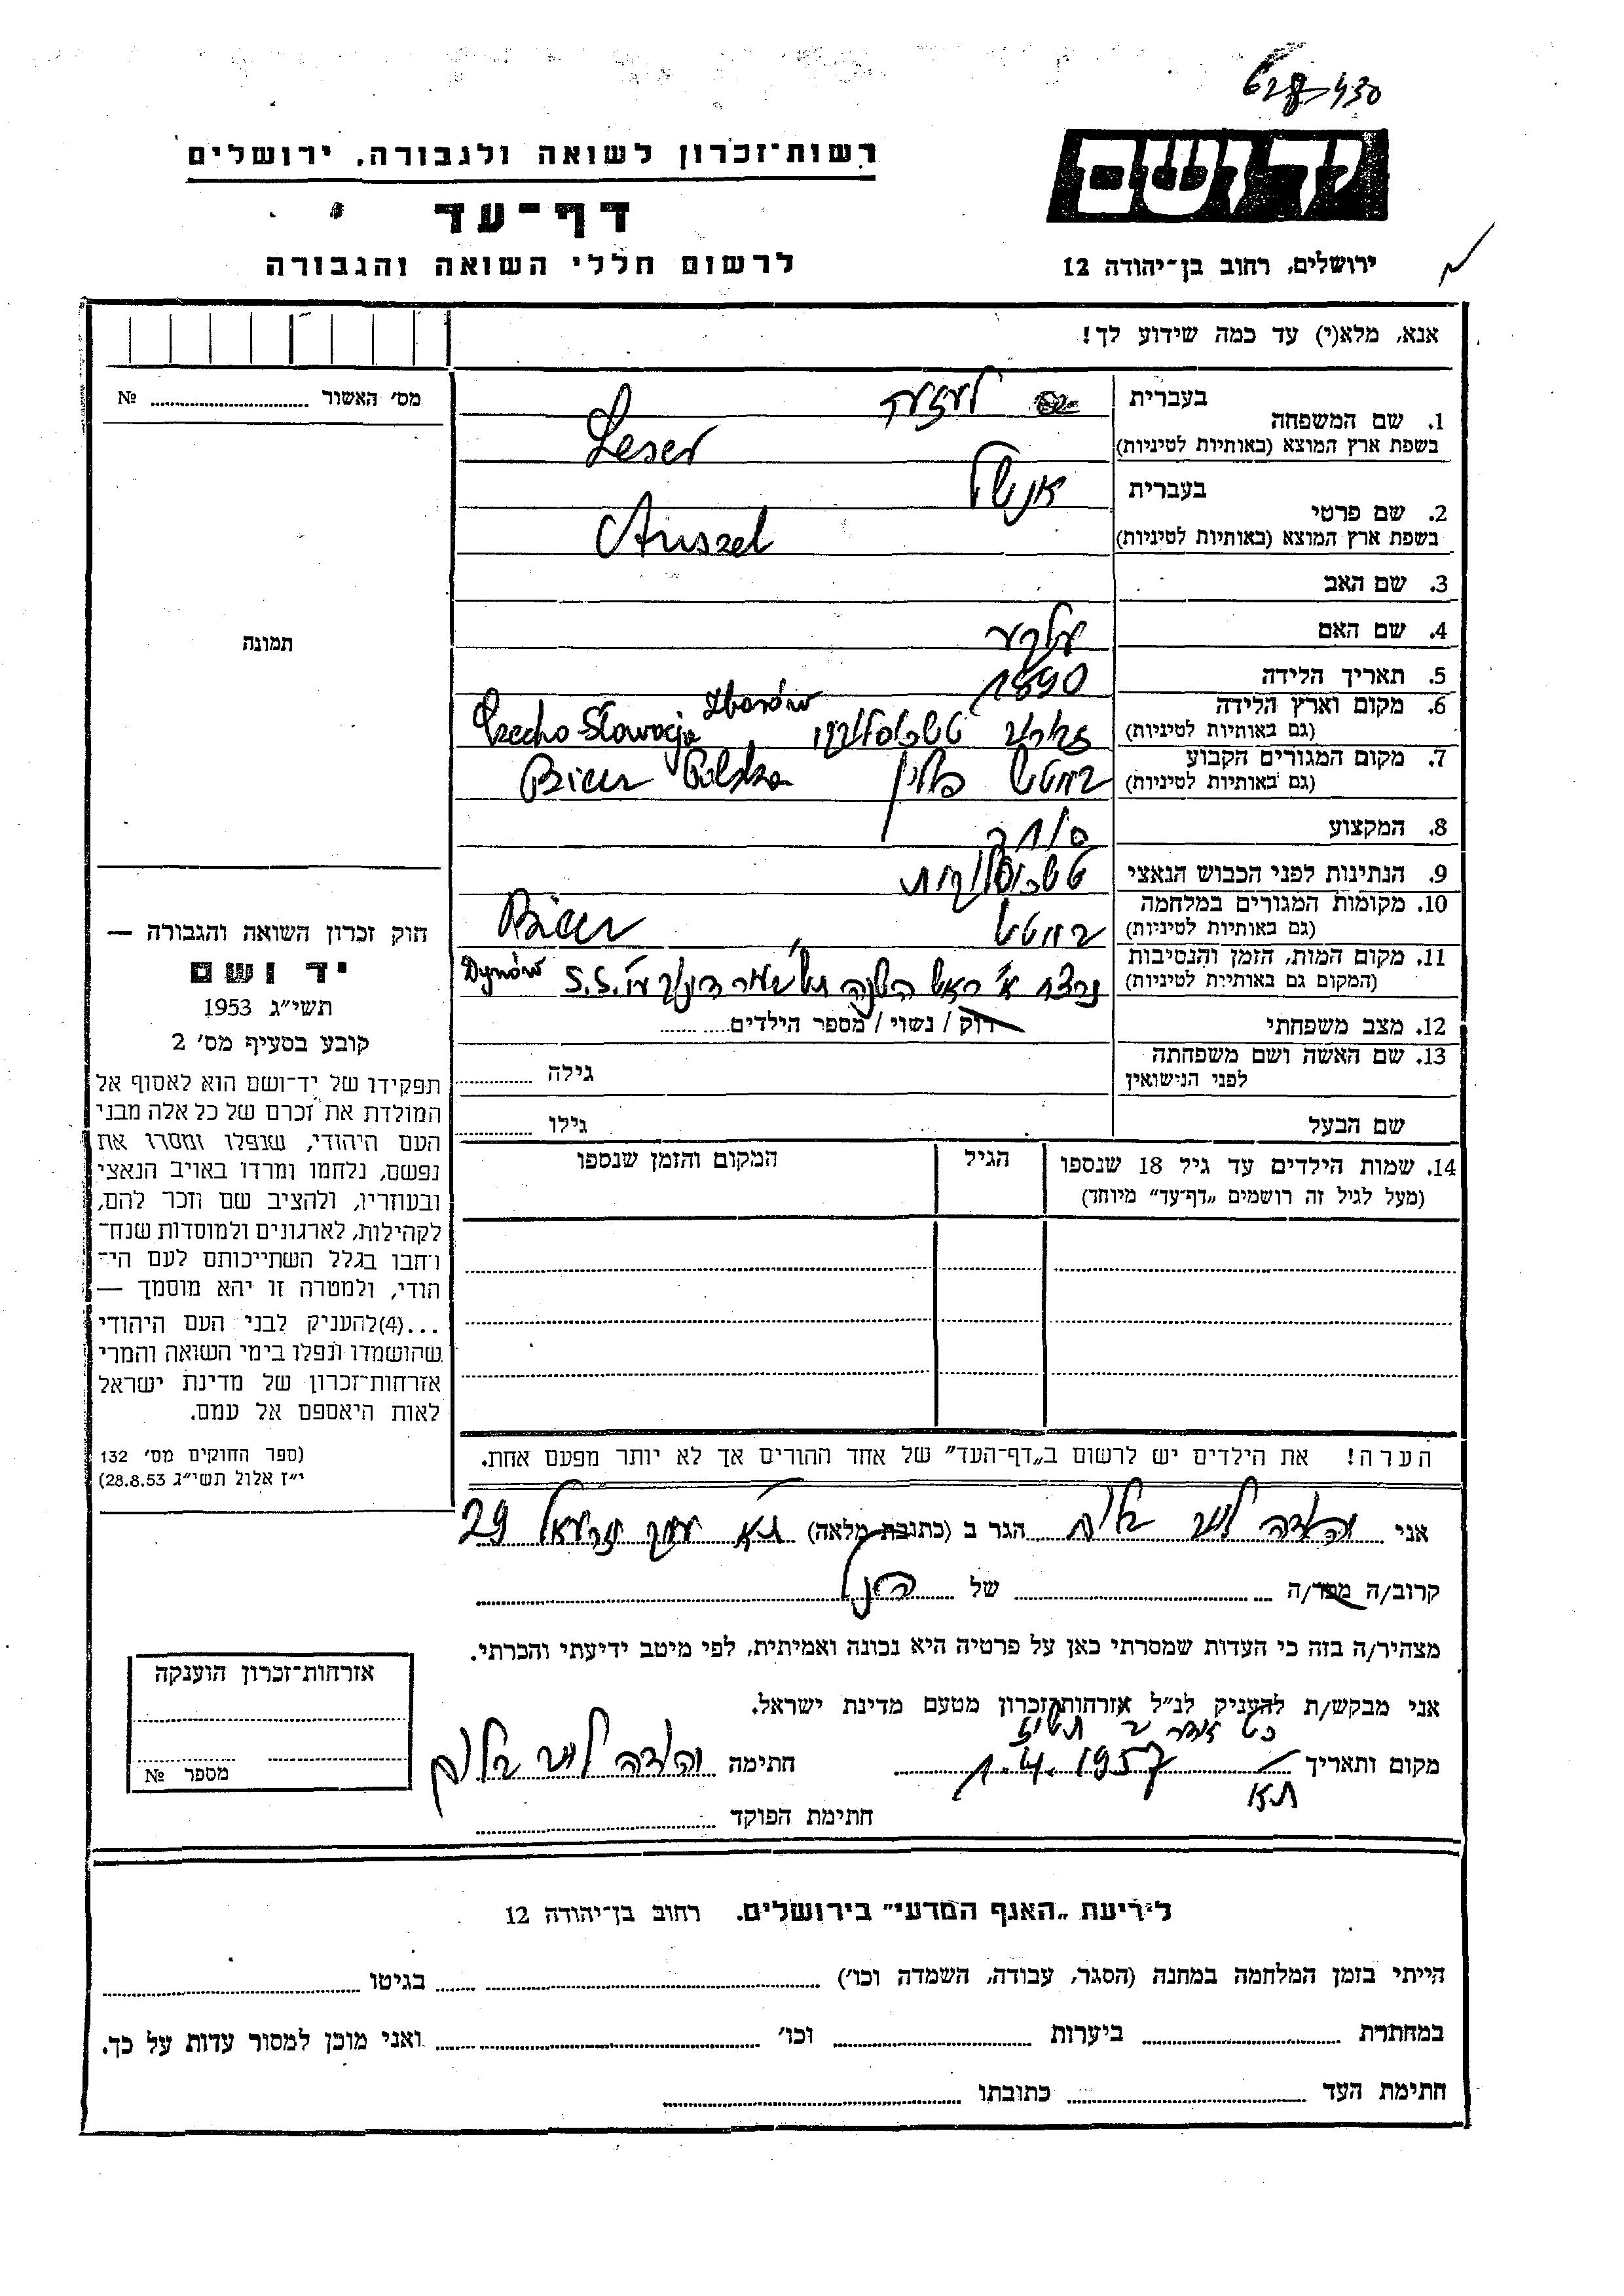 ידושם
רשות־זכרון לשואה ולגבורה, ירושלים
דף־עד
ירושלים, רחוב בן־יהודה 12
לרשום חללי השואה והגבורה
אנא, מלא(י) עד כמה שידוע לך!
מס׳ האשור № 
תמונה
1. שם המשפחה
בעברית לעזער
בשפת ארץ המוצא (באותיות לטיניות) Leser
2. שם פרטי
בעברית אנשל
בשפת ארץ המוצא (באותיות לטיניות) Anszel
3. שם האב
4. שם האם
5. תאריך הלידה 1890
6. מקום וארץ הלידה
(גם באותיות לטיניות) Zborów Czecho Słowacja
7. מקום המגורים הקבוע
(גם באותיות לטיניות) פולין Bicer Polska
8. המקצוע
9. הנתינות לפני הכבוש הנאצי
10. מקומות המגורים במלחמה
(גם באותיות לטיניות) Bicer
11. מקום המות, הזמן והנסיבות
(המקום גם באותיות לטיניות) נרצח א׳ ראש השנה S.S. Dynów
12. מצב משפחתי רוק / נשוי / מספר הילדים
13. שם האשה ושם משפחתה
לפני הנישואין גילה
שם הבעל גילו
14. שמות הילדים עד גיל 18 שנספו
(מעל לגיל זה רושמים „דף־עד” מיוחד)
הגיל
המקום והזמן שנספו
הערה! את הילדים יש לרשום ב„דף־העד” של אחד ההורים אך לא יותר מפעם אחת.
חוק זכרון השואה והגבורה —
יד ושם
תשי״ג 1953
קובע בסעיף מס׳ 2
תפקידו של יד־ושם הוא לאסוף אל
המולדת את זכרם של כל אלה מבני
העם היהודי, שנפלו ומסרו את
נפשם, נלחמו ומרדו באויב הנאצי
ובעוזריו, ולהציב שם וזכר להם,
לקהילות, לארגונים ולמוסדות שנח־
רבו בגלל השתייכותם לעם הי־
הודי, ולמטרה זו יהא מוסמך —
...(4)להעניק לבני העם היהודי
שהושמדו ונפלו בימי השואה והמרי
אזרחות־זכרון של מדינת ישראל
לאות היאספם אל עמם.
(ספר החוקים מס׳ 132
י״ז אלול תשי״ג 28.8.53)
אני הגר ב (כתובת מלאה) ת״א עמק יזרעאל 29
קרוב/ה מכר/ה של הנ״ל
מצהיר/ה בזה כי העדות שמסרתי כאן על פרטיה היא נכונה ואמיתית, לפי מיטב ידיעתי והכרתי.
אני מבקש/ת להעניק לנ״ל אזרחות־זכרון מטעם מדינת ישראל.
כט אדר ב תשיז
מקום ותאריך 1.4.1957 חתימה
ת״א
חתימת הפוקד
אזרחות־זכרון הוענקה
מספר №
לידיעת „האגף המדעי” בירושלים. רחוב בן־יהודה 12
הייתי בזמן המלחמה במחנה (הסגר, עבודה, השמדה וכו׳) בגיטו
במחתרת ביערות וכו׳ ואני מוכן למסור עדות על כך.
חתימת העד כתובתו